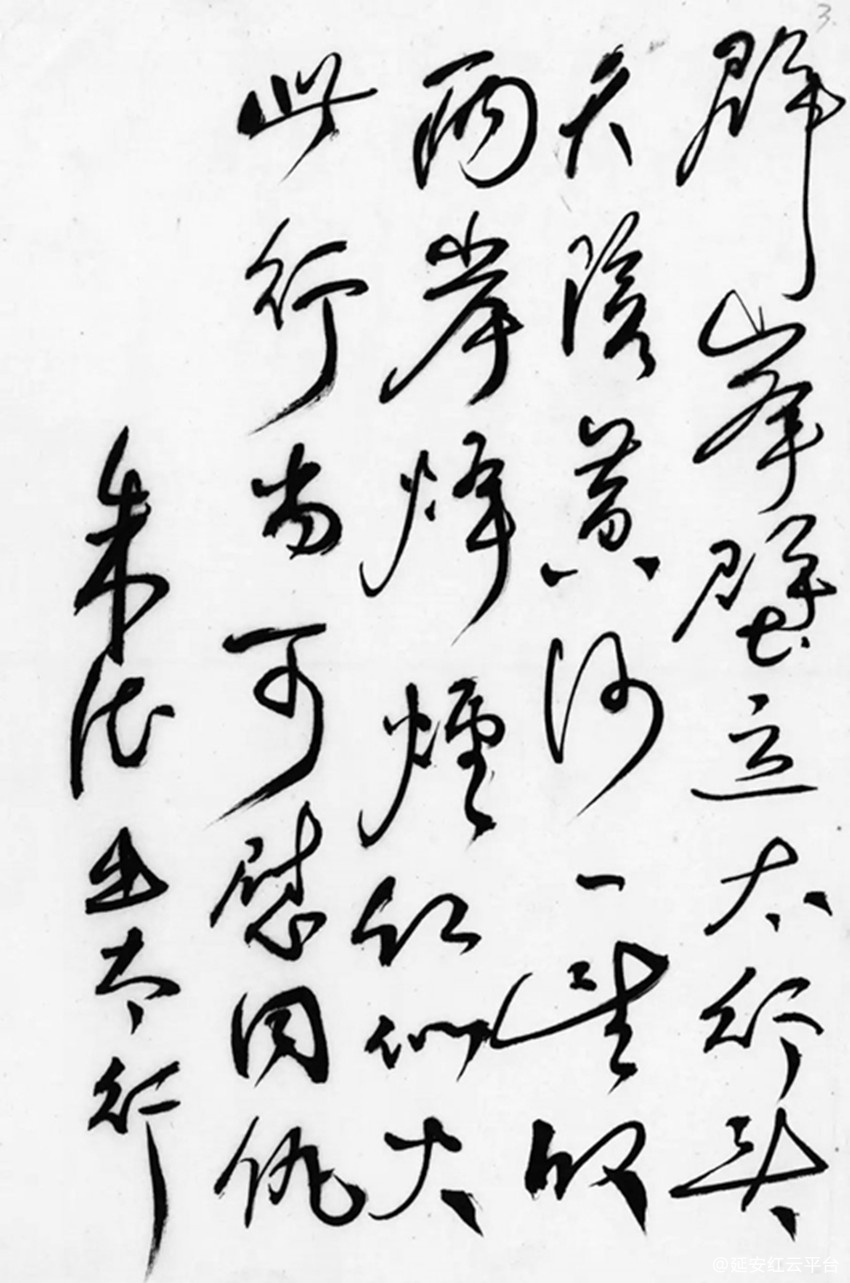 3.
群峯壁立太行头
天险黄河一望收
两岸烽煙红似火
此行当可慰同仇
朱德 出太行
@延安红云平台